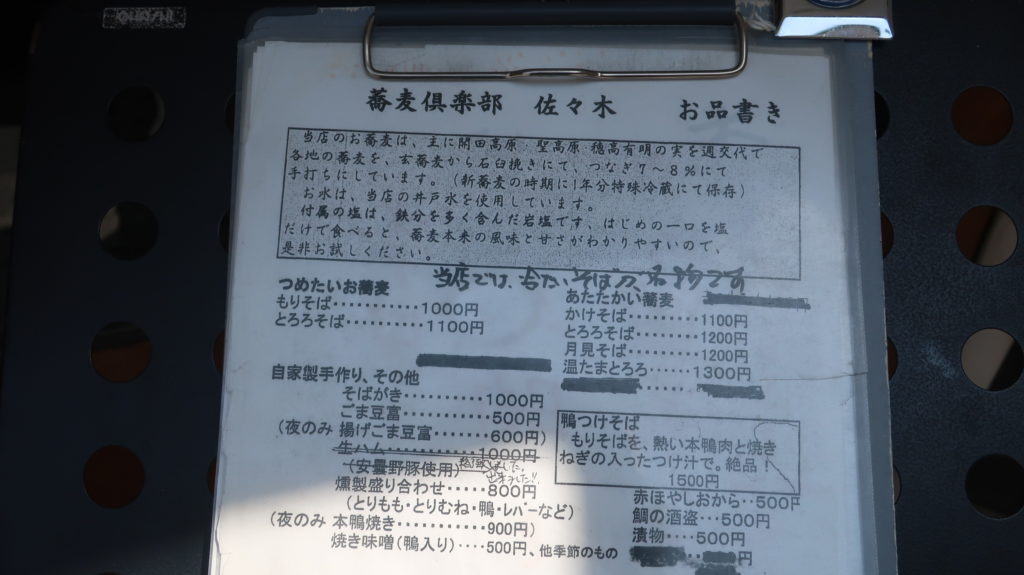 OHASHI
蕎麦倶楽部 佐々木 お品書き
当店のお蕎麦は、主に開田高原・聖高原・穂高有明の実を週交代で
各地の蕎麦を、玄蕎麦から石臼挽きにて、つなぎ7~8%にて
手打ちにしています。(新蕎麦の時期に1年分特殊冷蔵にて保存)
お水は、当店の井戸水を使用しています。
付属の塩は、鉄分を多く含んだ岩塩です、はじめの一口を塩
だけで食べると、蕎麦本来の風味と甘さがわかりやすいので、
是非お試しください。
当店では、冷たいそばが名物です
つめたいお蕎麦
もりそば・・・・・・・・・・・1000円
とろろそば・・・・・・・・・・1100円
あたたかい蕎麦
かけそば・・・・・・・・・・1100円
とろろそば・・・・・・・・1200円
月見そば・・・・・・・・・1200円
温たまとろろ・・・・・・1300円
自家製手作り、その他
そばがき・・・・・・・・・・1000円
ごま豆富・・・・・・・・・・500円
(夜のみ 揚げごま豆富・・・・・・・600円)
生ハム・・・・・・・・・・・1000円
(安曇野豚使用)
燻製盛り合わせ・・・・・800円
(とりもも・とりむね・鴨・レバーなど)
(夜のみ 本鴨焼き・・・・・・・・・・・900円)
焼き味噌(鴨入り)・・・・500円、他季節のもの
鴨つけそば
もりそばを、熱い本鴨肉と焼き
ねぎの入ったつけ汁で。絶品!
1500円
赤ほやしおから・・500円
鯛の酒盗・・・500円
漬物・・・・500円
円